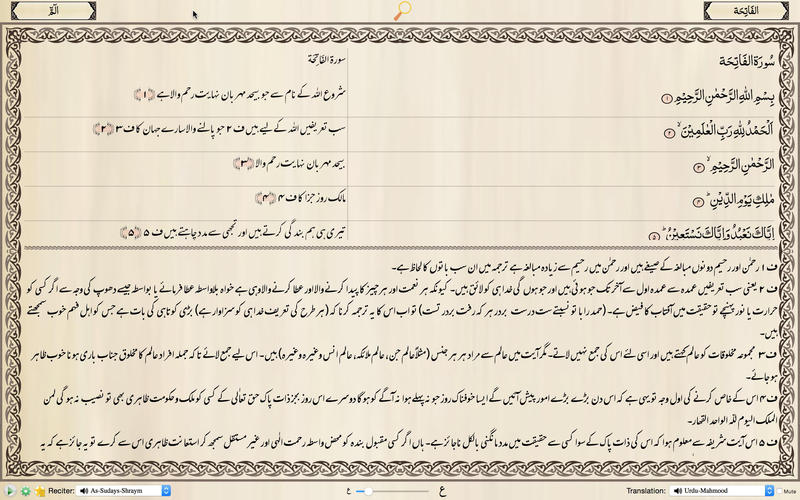 الٓمّٓ
الفَاتِحَة
سُوۡرَةُ الفَاتِحَة
سورة الفَاتِحَة
بِسۡمِ اللّٰهِ الرَّحۡمٰنِ الرَّحِيۡمِ ۱
شروع اللہ کے نام سے جو بیحد مہربان نہایت رحم والا ہے ﴿۱﴾
اَلۡحَمۡدُ لِلّٰهِ رَبِّ الۡعٰلَمِيۡنَۙ ۲
سب تعریفیں اللہ کے لیے ہیں ف ۲ جو پالنے والا سارے جہان کا ف ۳ ﴿۲﴾
الرَّحۡمٰنِ الرَّحِيۡمِۙ ۳
بیحد مہربان نہایت رحم والا ﴿۳﴾
مٰلِكِ يَوۡمِ الدِّيۡنِؕ ۴
مالک روز جزا کا ف ۴ ﴿۴﴾
اِيَّاكَ نَعۡبُدُ وَاِيَّاكَ نَسۡتَعِيۡنُؕ ۵
تیری ہی ہم بندگی کرتے ہیں اور تجھی سے مدد چاہتے ہیں ف ۵ ﴿۵﴾
ف ۱ رحمٰن اور رحیم دونوں مبالغہ کے صیغے ہیں اور رحمٰن میں رحیم سے زیادہ مبالغہ ہے ترجمہ میں ان سب باتوں کا لحاظ ہے۔
ف ۲ یعنی سب تعریفیں عمدہ سے عمدہ اول سے آخر تک جو ہوئی ہیں اور جو ہوں گی خدا ہی کو لائق ہیں۔ کیونکہ ہر نعمت اور ہر چیز کا پیدا کرنے والا اور عطا کرنے والا وہی ہے خواہ بلاواسطہ عطا فرمائے یا بواسطہ جیسے دھوپ کی وجہ سے اگر کسی کو
حرارت یا نور پہنچے تو حقیقت میں آفتاب کا فیض ہے۔ (حمد را با تو نسبتے ست درست بر در ہر کہ رفت بر در تست) تو اب اس کا یہ ترجمہ کرنا کہ (ہر طرح کی تعریف خدا ہی کو سزاوار ہے) بڑی کوتاہی کی بات ہے جس کو اہل فہم خوب سمجھتے
ہیں۔
ف ۳ مجموعہ مخلوقات کو عالم کہتے ہیں اور اسی لئے اس کی جمع نہیں لاتے۔ مگر آیت میں عالم سے مراد ہر ہر جنس (مثلاً عالم جن، عالم ملائکہ، عالم انس وغیرہ وغیرہ) ہیں۔ اس لیے جمع لائے تاکہ جملہ افراد عالم کا مخلوق جناب باری ہونا خوب ظاہر
ہو جائے۔
ف ۴ اس کے خاص کرنے کی اول وجہ تو یہی ہے کہ اس دن بڑے بڑے امور پیش آئیں گے ایسا خوفناک روز جو نہ پہلے ہوا نہ آگے کو ہو گا دوسرے اس روز بجز ذات پاک حق تعالٰی کے کسی کو ملک و حکومت ظاہری بھی تو نصیب نہ ہو گی لمن
الملک الیوم للہ الواحد القھار۔
ف ۵ اس آیت شریفہ سے معلوم ہوا کہ اس کی ذات پاک کے سوا کسی سے حقیقت میں مدد مانگنی بالکل ناجائز ہے۔ ہاں اگر کسی مقبول بندہ کو محض واسطہ رحمت الٰہی اور غیر مستقل سمجھ کر استعانت ظاہری اس سے کرے تو یہ جائز ہے کہ یہ
Reciter: As-Sudays-Shraym ع ع Translation: Urdu-Mahmood Mute